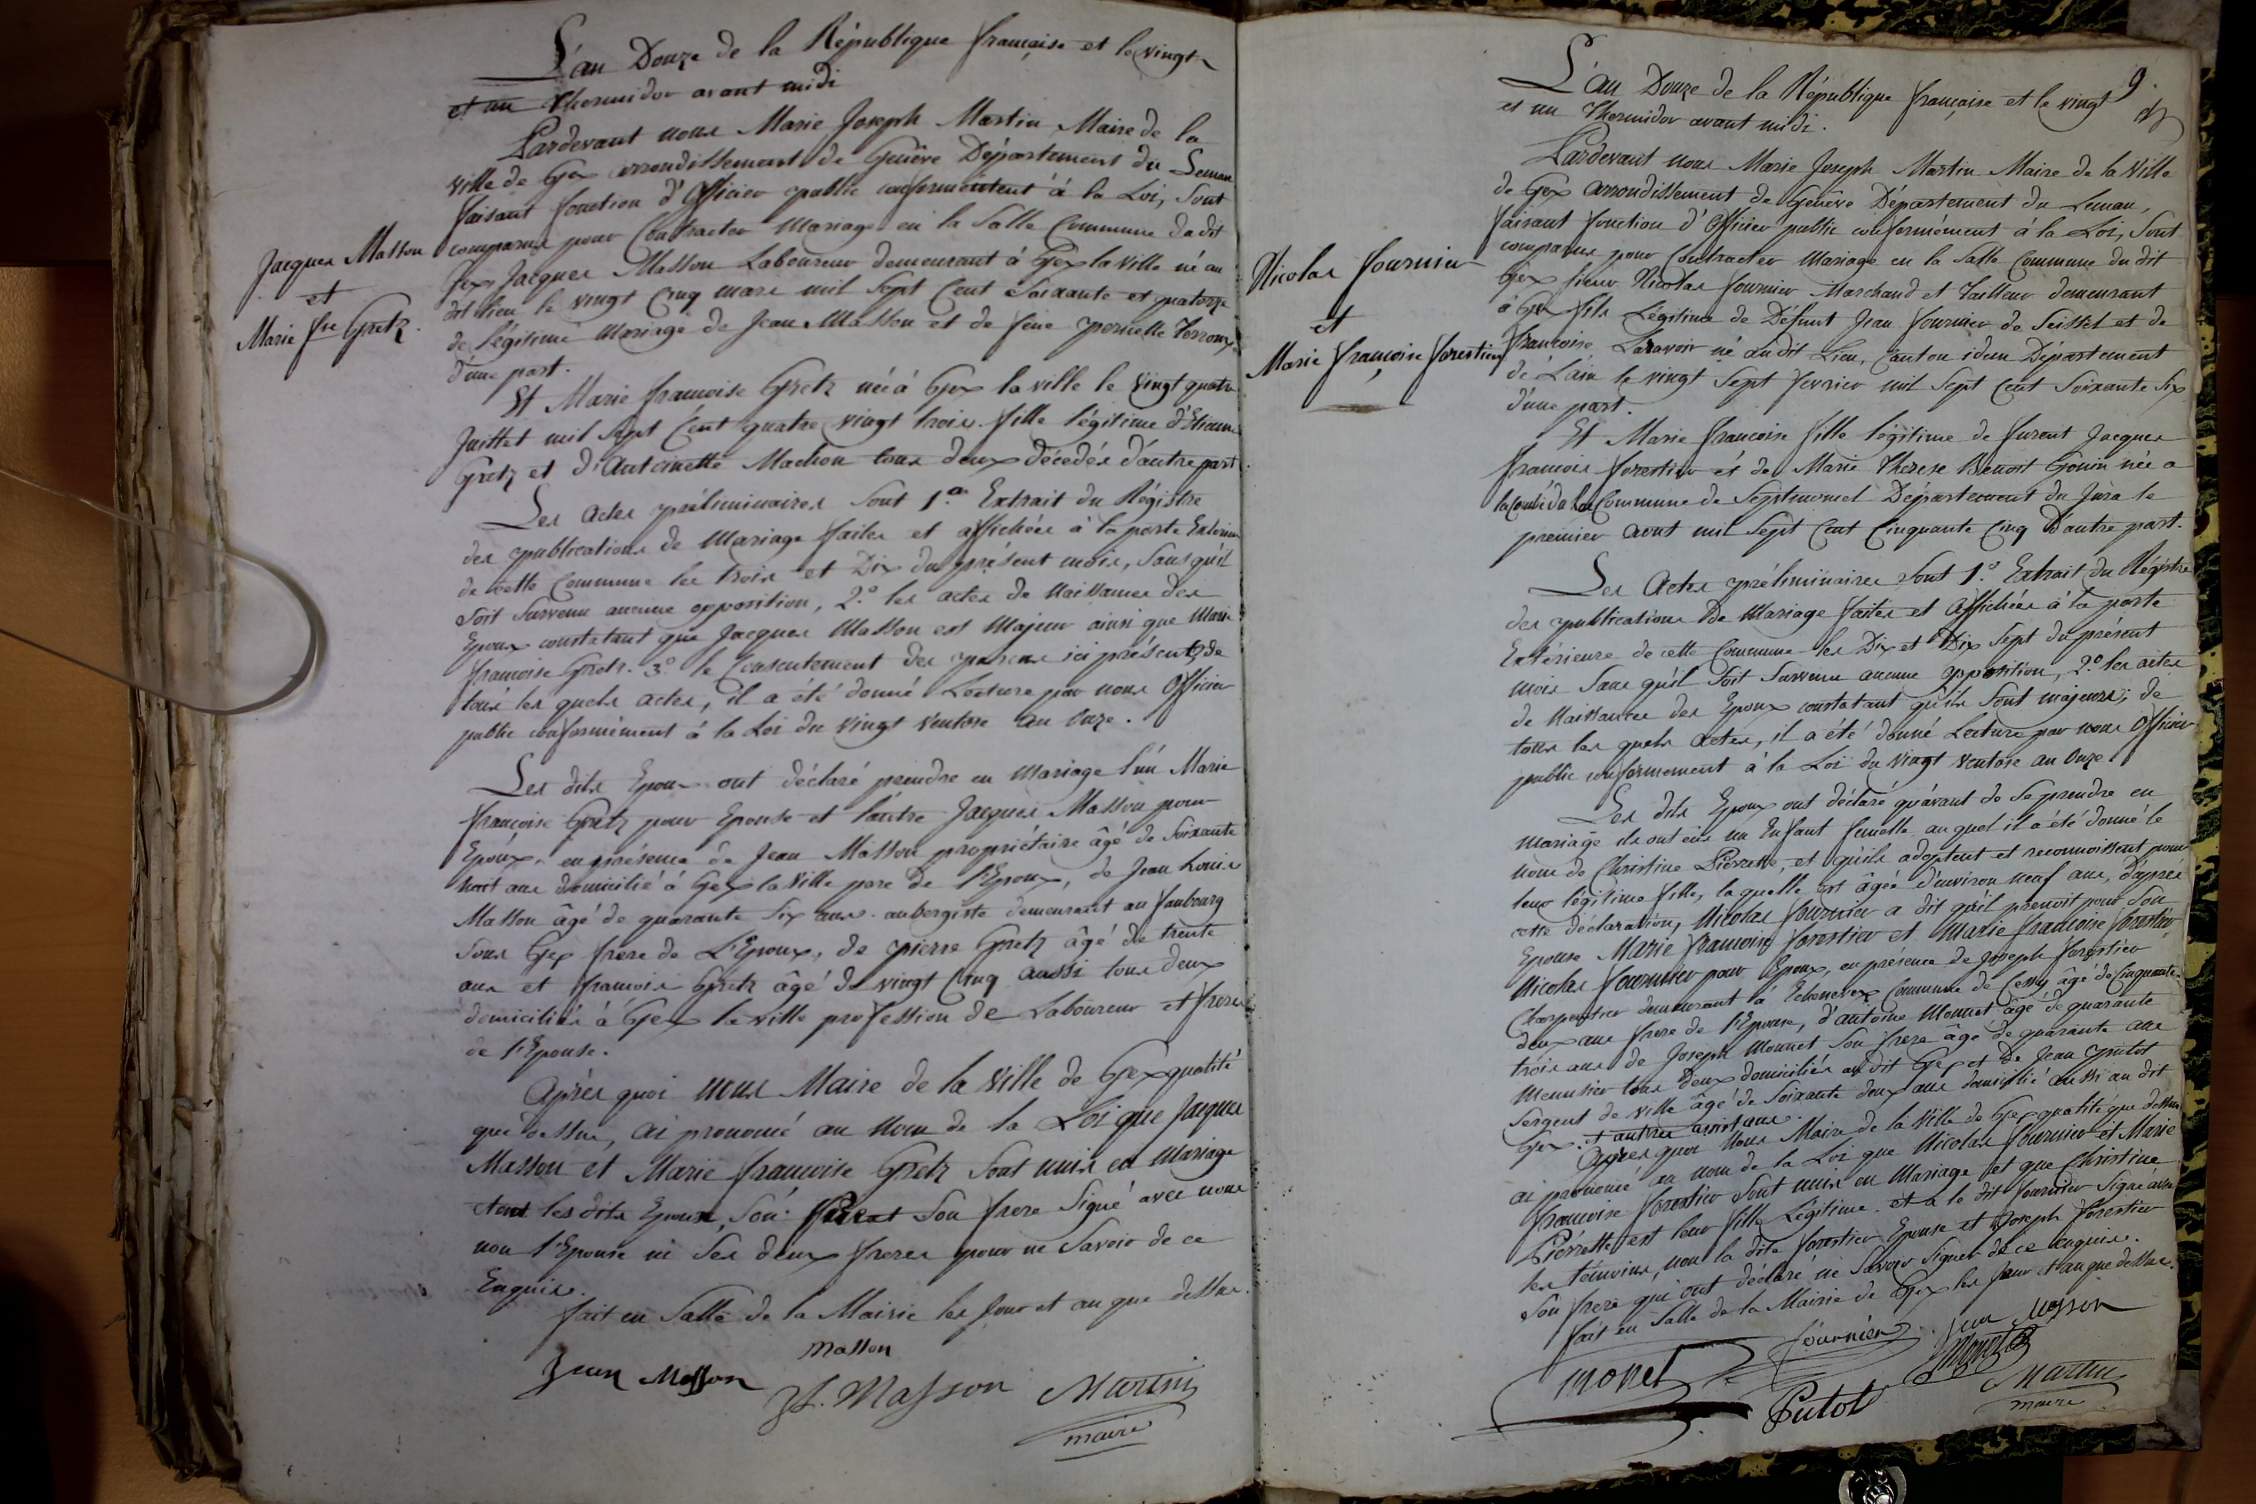 L'an Douze de la République française et le vingt
et un Thermidor avant midi
Pardevant nous Marie Joseph Martin Maire de la
ville de Gex arrondissement de Genève Département du Leman
faisant fonction d'Officier public conformément à la Loi, Sont
comparus pour Contracter Mariage en la Salle Commune du dit
Gex, Jacques Masson Laboureur demeurant à Gex la ville né au
dit lieu le vingt Cinq mars mil Sept Cent Soixante et quatorze
de légitime Mariage de Jean Masson et de feue pernette
d'une part.
Jacques Masson
et
Marie fse Gretz.
Et Marie francoise Gretz née à Gex la ville le vingt quatre
Juillet mil Sept Cent quatre vingt trois fille légitime d'Etienne
Gretz et d'Antoinette Machon tous deux décedés d'autre part
Les actes préliminaires Sont 1.er Extrait du Régistre
des publications de Mariage faites et affichées à la porte Exterieure
de cette Commune les trois et Dix du présent mois, Sans qu'il
Soit Survenu aucune opposition, 2.o les actes de Naissances des
Epoux constatant que Jacques Masson est Majeur ainsi que Marie
francoise Gretz. 3.o le Consentement des parens ici présents de
tous les quels actes, il a été donné Lecture par nous Officier
public conformément à la Loi du vingt Ventose an Onze.
Les dits Epoux ont déclaré prendre en Mariage l'un Marie
françoise Gretz pour Epouse et l'autre Jacques Masson pour
Epoux, en présence de Jean Masson propriétaire âgé de Soixante
huit ans domicilié à Gex la Ville pere de l'Epoux, de Jean Louis
Masson âgé de quarante Six ans aubergiste demeurant au faubourg
Sous Gex frere de L'Epoux, de pierre Gretz âgé de trente
ans et francois Gretz âgé de vingt Cinq aussi tous deux
domiciliés à Gex la ville profession de Laboureur et freres
de l'Epouse.
Après quoi nous Maire de la Ville de Gex qualité
que dessus, ai prononcé au Nom de la Loi que Jacques
Masson et Marie francoise Gretz Sont unis en Mariage
et ont les dits Epoux, Son Son frere Signé avec nous
non l'Epouse ni Ses deux freres pour ne Savoir de ce
Enquis.
fait en Salle de la Mairie les Jour et an que dessus.
Masson
Jean Masson
JL. Masson
Martin
maire
9.
L'an Douze de la République française et le vingt
et un Thermidor avant midi.
Pardevant nous Marie Joseph Martin Maire de la Ville
de Gex arrondissement de Genêve Département du Leman,
faisant fonction d'Officier public conformément à la Loi, Sont
comparus pour Contracter Mariage en la Salle Commune du dit
Gex Sieur Nicolas fournier Marchand et Tailleur demeurant
à Gex fils Légitime de Défunt Jean fournier de Seissel et de
francoise Laravoir né au dit Lieu, Canton idem Département
de L'ain le vingt Sept fevrier mil Sept Cent Soixante Six
d'une part.
Nicolas fournier
et
Marie françoise forestier
Et Marie francoise fille légitime de furent Jacques
francois forestier et de Marie Therese Benoit Gonin née a
la Combe du Lac Commune de Septmoncel Département du Jura le
premier aout mil Sept Cent Cinquante Cinq D'autre part.
Les Actes préliminaires Sont 1.o Extrait du Régistre
des publications de Mariage faites et Affichées à la porte
Extérieure de cette Commune les Dix et Dix Sept du présent
mois Sans qu'il Soit Survenu aucune opposition, 2.o les actes
de Naissances des Epoux constatant qu'ils Sont majeurs; de
tous les quels actes, il a été donné Lecture par nous Officier
public conformement à la Loi du vingt Ventose an Onze.
Les dits Epoux ont déclaré qu'avant de Se prendre en
mariage ils ont eus un Enfant femelle auquel il a été donné le
nom de Christine Pierrette, et qu'ils adoptent et reconnoissent pour
leur légitime fille, la quelle est âgée d'environ neuf ans, d'après
cette déclaration, Nicolas fournier a dit qu'il prenoit pour Son
Epouse Marie francoise forestier et Marie francoise forestier
Nicolas fournier pour Epoux, en présence de Joseph forestier
Charpentier demeurant à Echenevex Commune de Cessy âgé de Cinquante
deux ans frere de l'Epouse, d'antoine Monnet âgé de quarante
trois ans de Joseph Monnet Son frere âgé de quarante ans
Menuisier tous deux domiciliés au dit Gex et de Jean putot
Sergent de ville âgé de Soixante deux ans domicilié aussi au dit
Gex. et autres assistans.
Après quoi Nous Maire de la Ville de Gex qualité que dessus
ai prononcé au nom de la Loi que Nicolas fournier et Marie
francoise forestier Sont unis en Mariage et que Christine
Pierrette est leur fille Légitime. et a le dit fournier Signé avec
les témoins, non la dite forestier Epouse et Joseph forestier
Son frere qui ont déclaré ne Savoir Signer de ce enquis.
fait en Salle de la Mairie de Gex les Jour et an que dessus.
monet
fournier
Jean Masson
Monet
Putot
Martin
maire